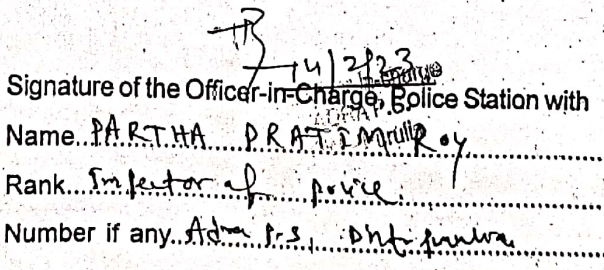 14/2/23
Signature of the Officer-in-Charge, Police Station with
Name..PARTHA PRATIM Roy
Rank...Inspector of police
Number if any..Adra P.S,